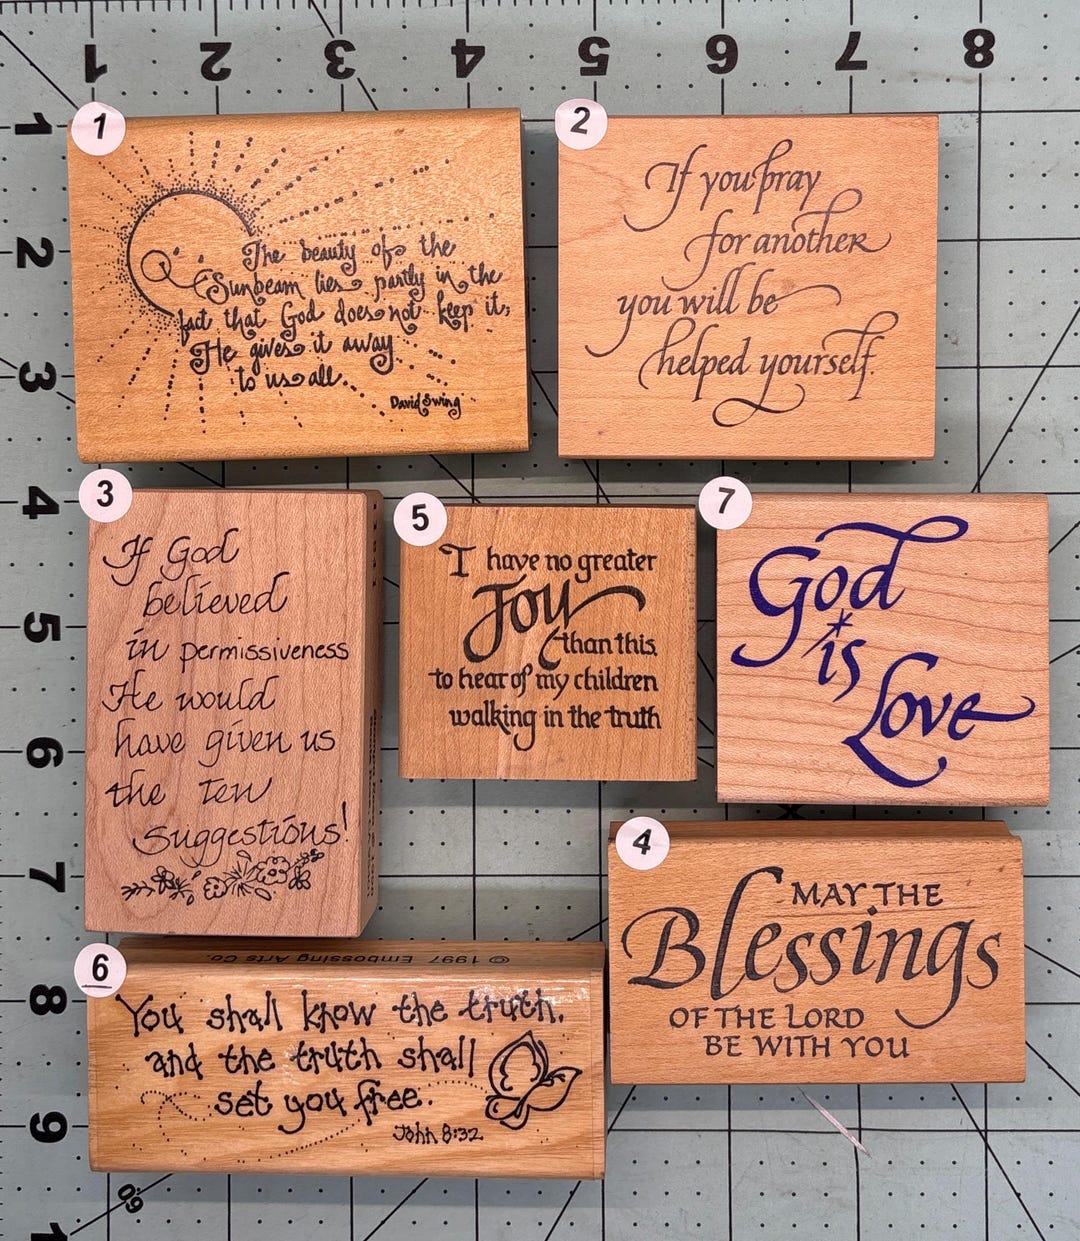 1 2 3 4 5 6 7 8
1
2
3
4
5
6
7
8
9
1
The beauty of the
Sunbeam lies partly in the
fact that God does not keep it;
He gives it away
to us all.
David Swing
2
If you pray
for another
you will be
helped yourself.
3
If God
believed
in permissiveness
He would
have given us
the Ten
Suggestions!
5
I have no greater
Joy
than this
to hear of my children
walking in the truth
7
God
is
Love
4
MAY THE
Blessings
OF THE LORD
BE WITH YOU
6
© 1997 Embossing Arts Co.
You shall know the truth,
and the truth shall
set you free.
John 8:32
60